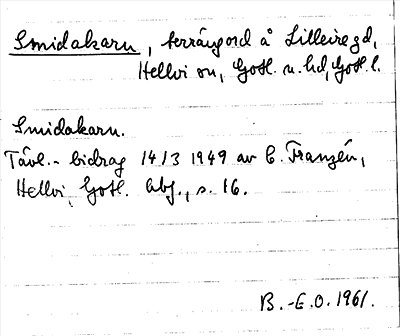 Smidakaru, terrängord å Lilleire gd,
Hellvi sn, Gotl. n. hd, Gotl. l.
Smidakaru.
Tävl.- bidrag 14/3 1949 av C. Franzén,
Hellvi, Gotl. Avj., s. 16.
B.-E.O. 1961.